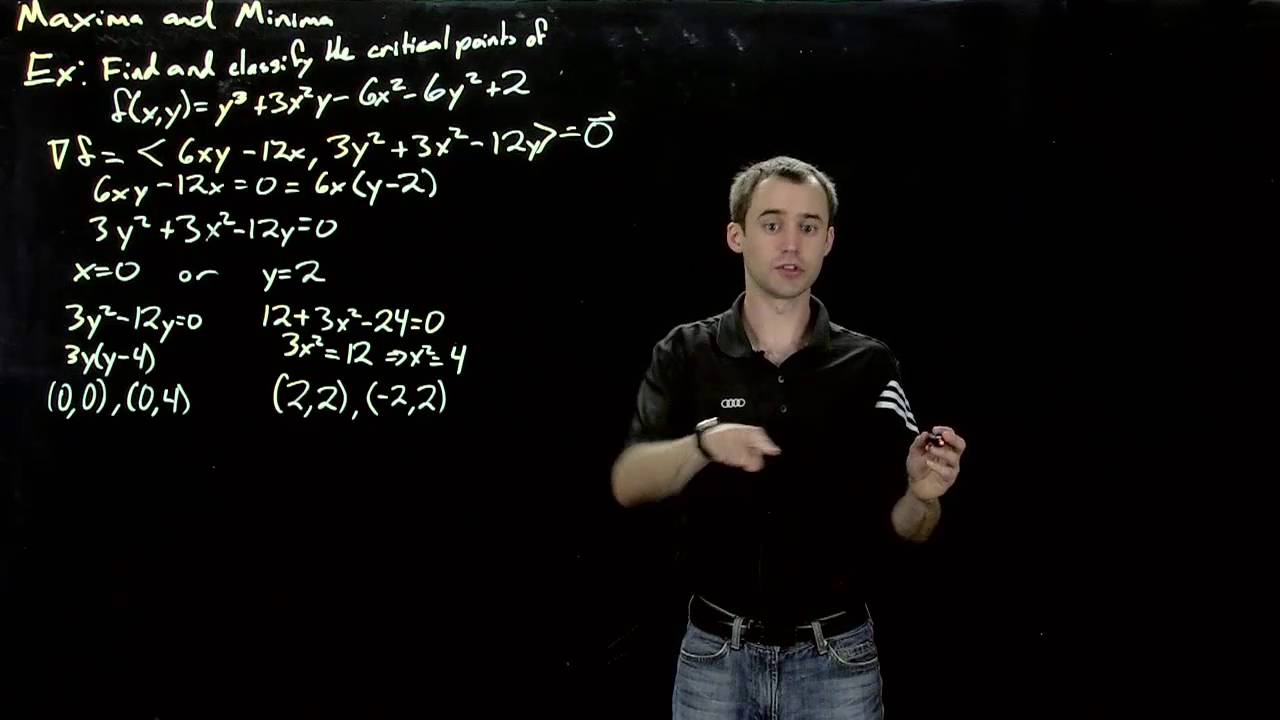 Maxima and Minima
Ex: Find and classify the critical points of
f(x,y)= y³+3x²y-6x²-6y²+2
∇f= <6xy-12x, 3y²+3x²-12y>=0⃗
6xy-12x=0=6x(y-2)
3y²+3x²-12y=0
x=0 or y=2
3y²-12y=0 12+3x²-24=0
3y(y-4) 3x²=12 ⇒x²=4
(0,0),(0,4) (2,2),(-2,2)